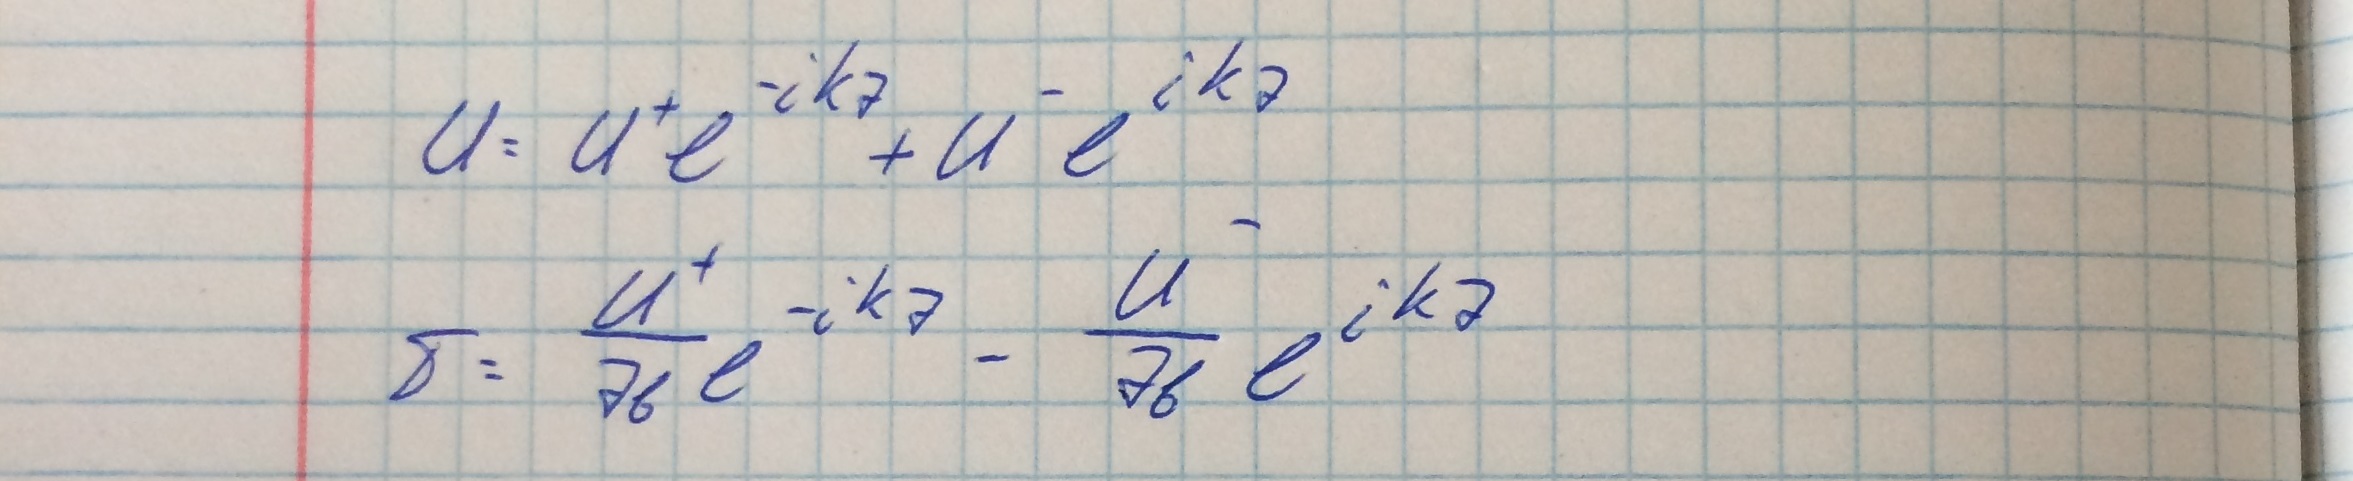 U = U⁺e^{-ikz} + U⁻e^{ikz}
I = \frac{U⁺}{z_в} e^{-ikz} - \frac{U⁻}{z_в} e^{ikz}